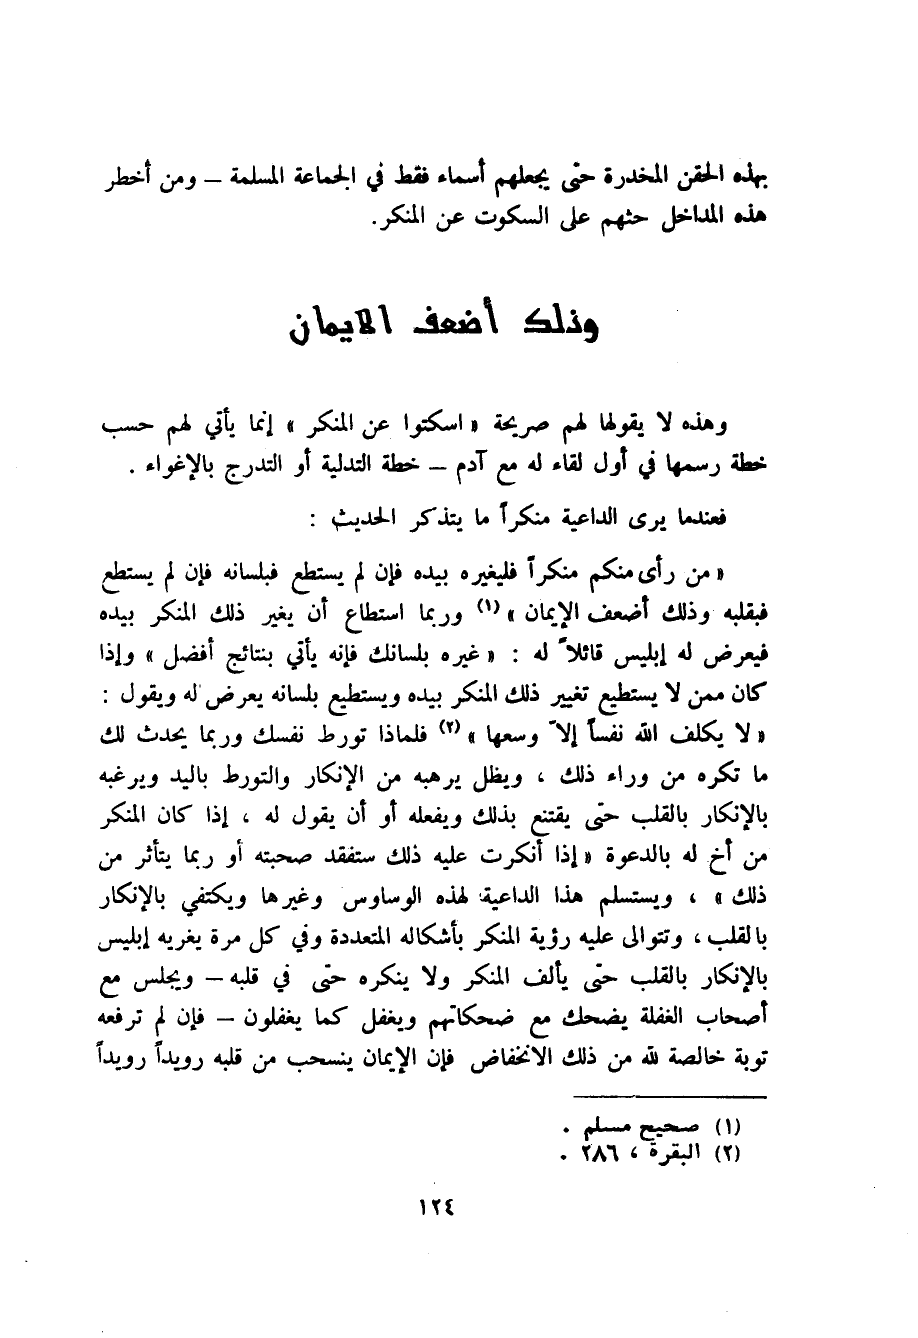 بهذه الحقن المخدرة حتّى يجعلهم أسماء فقط في الجماعة المسلمة – ومن أخطر
هذه المداخل حثهم على السكوت عن المنكر.
وذلك أضعف الايمان
وهذه لا يقولها لهم صريحة « اسكتوا عن المنكر » إنما يأتي لهم حسب
خطة رسمها في أول لقاء له مع آدم – خطة التدلية أو التدرج بالإغواء .
فعندما يرى الداعية منكراً ما يتذكر الحديث :
« من رأى منكم منكراً فليغيره بيده فإن لم يستطع فبلسانه فإن لم يستطع
فبقلبه وذلك أضعف الإيمان » (١) وربما استطاع أن يغير ذلك المنكر بيده
فيعرض له إبليس قائلاً له : « غيره بلسانك فإنه يأتي بنتائج أفضل » وإذا
كان ممن لا يستطيع تغيير ذلك المنكر بيده ويستطيع بلسانه يعرض له ويقول :
« لا يكلف الله نفساً إلاّ وسعها » (٢) فلماذا تورط نفسك وربما يحدث لك
ما تكره من وراء ذلك ، ويظل يرهبه من الإنكار والتورط باليد ويرغبه
بالإنكار بالقلب حتّى يقتنع بذلك ويفعله أو أن يقول له ، إذا كان المنكر
من أخ له بالدعوة « إذا أنكرت عليه ذلك ستفقد صحبته أو ربما يتأثر من
ذلك » ، ويستسلم هذا الداعية لهذه الوساوس وغيرها ويكتفي بالإنكار
بالقلب ، وتتوالى عليه رؤية المنكر بأشكاله المتعددة وفي كل مرة يغريه إبليس
بالإنكار بالقلب حتّى يألف المنكر ولا ينكره حتّى في قلبه – ويجلس مع
أصحاب الغفلة يضحك مع ضحكاتهم ويغفل كما يغفلون – فإن لم ترفعه
توبة خالصة لله من ذلك الانخفاض فإن الإيمان ينسحب من قلبه رويداً رويداً
(١) صحيح مسلم .
(٢) البقرة ، ٢٨٦ .
١٢٤